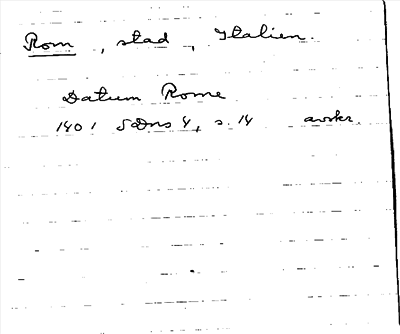 Rom, stad, Italien.
Datum Rome
1401 SDns 4, s. 14 avskr.